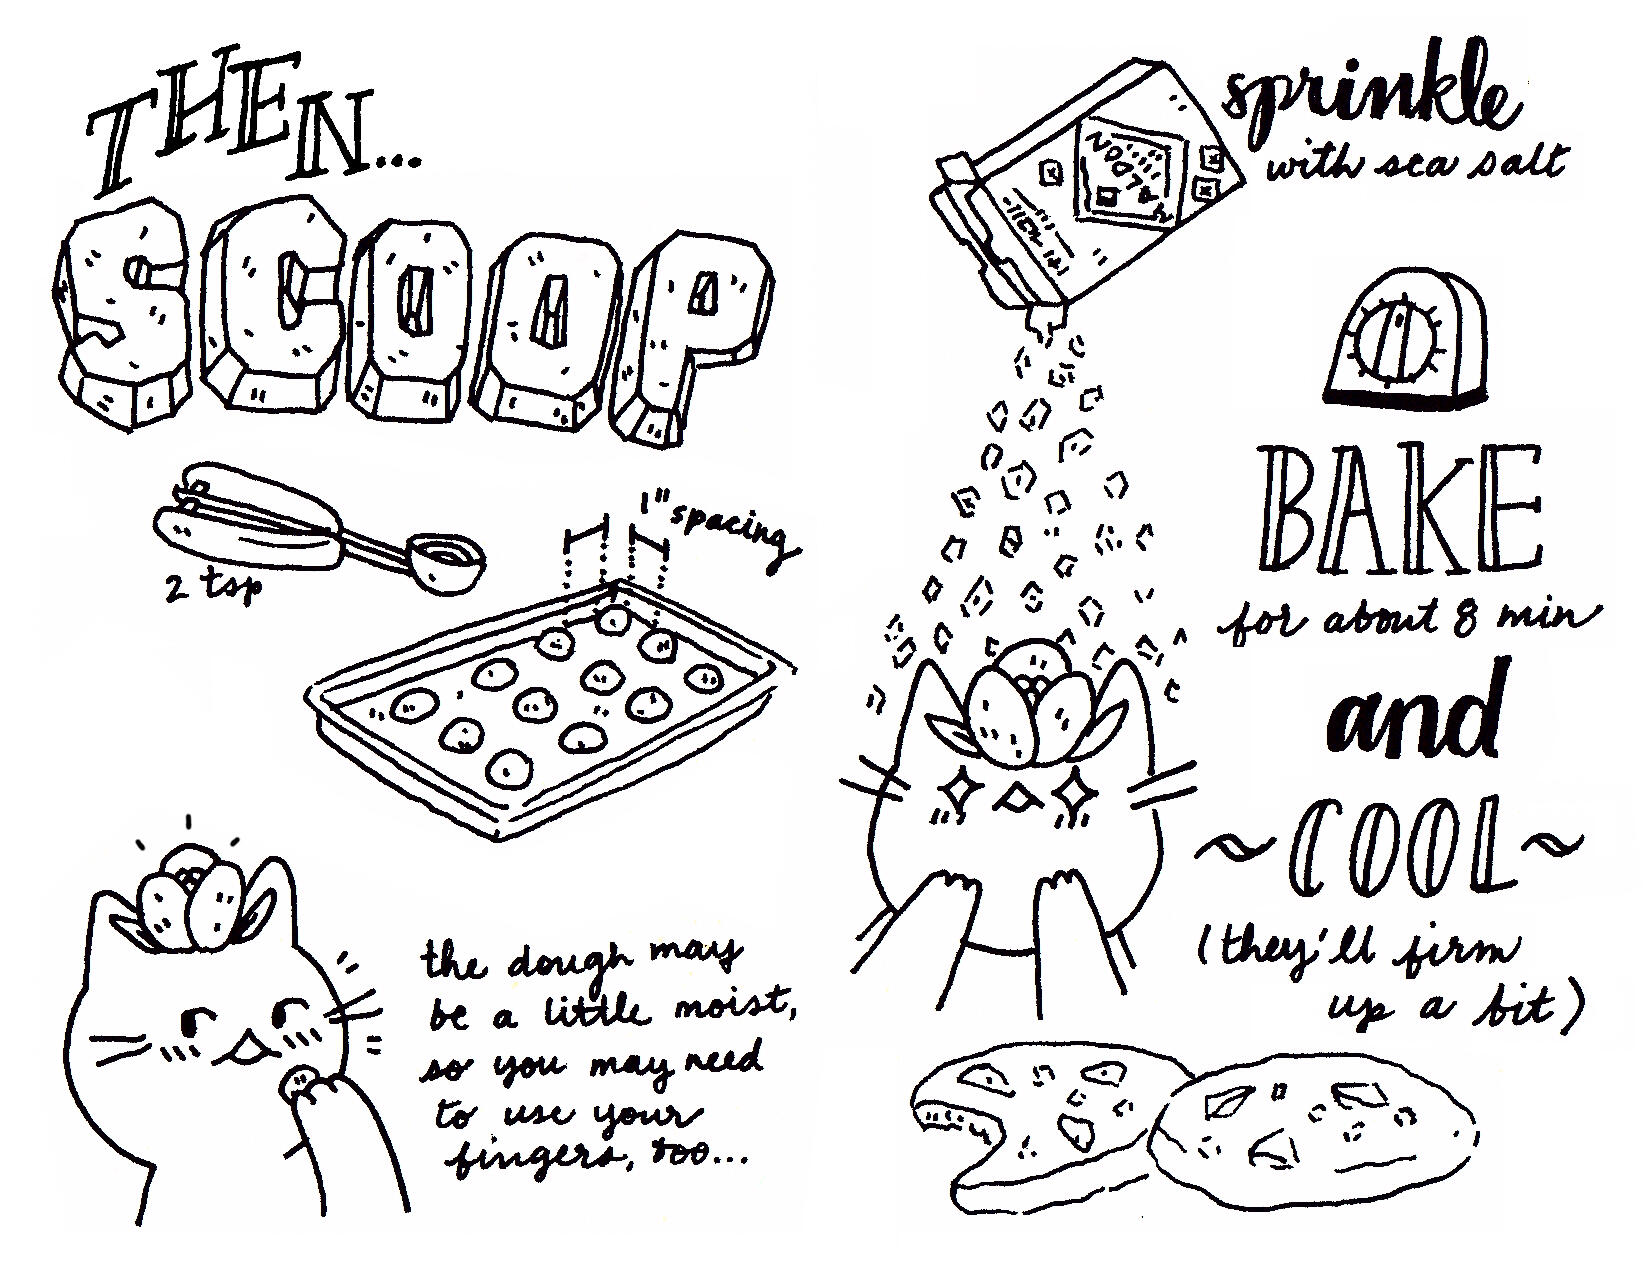 THEN...
SCOOP
2 tsp
1" spacing
the dough may
be a little moist,
so you may need
to use your
fingers, too...
sprinkle
with sea salt
MALDON
BAKE
for about 8 min
and
~COOL~
(they'll firm
up a bit)